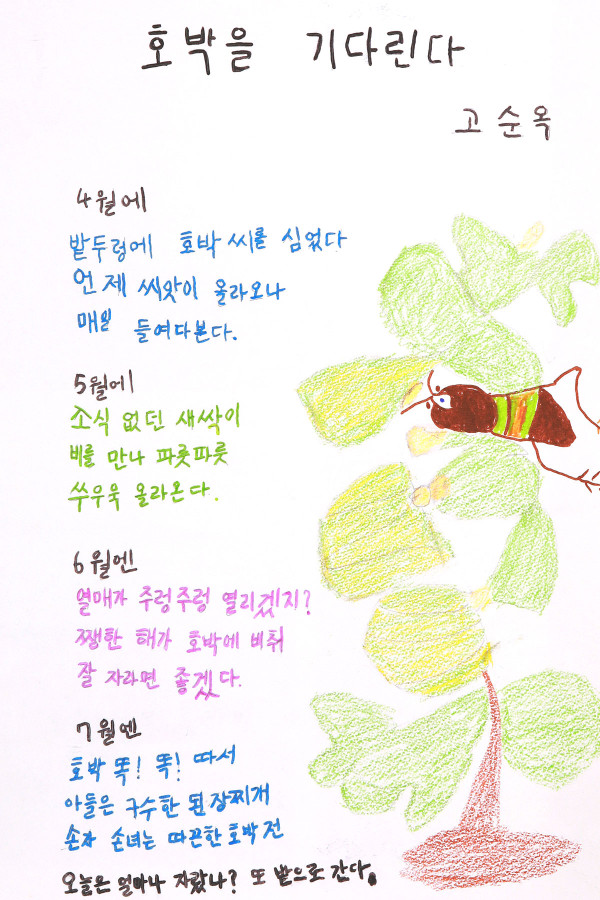 호박을 기다린다
고순옥
4월에
밭두렁에 호박씨를 심었다
언제 씨앗이 올라오나
매일 들여다본다.
5월에
소식 없던 새싹이
비를 만나 파릇파릇
쑤우욱 올라온다.
6월엔
열매가 주렁주렁 열리겠지?
쨍한 해가 호박에 비춰
잘 자라면 좋겠다.
7월엔
호박 똑! 똑! 따서
아들은 구수한 된장찌개
손자 손녀는 따끈한 호박전
오늘은 얼마나 자랐나? 또 밭으로 간다.